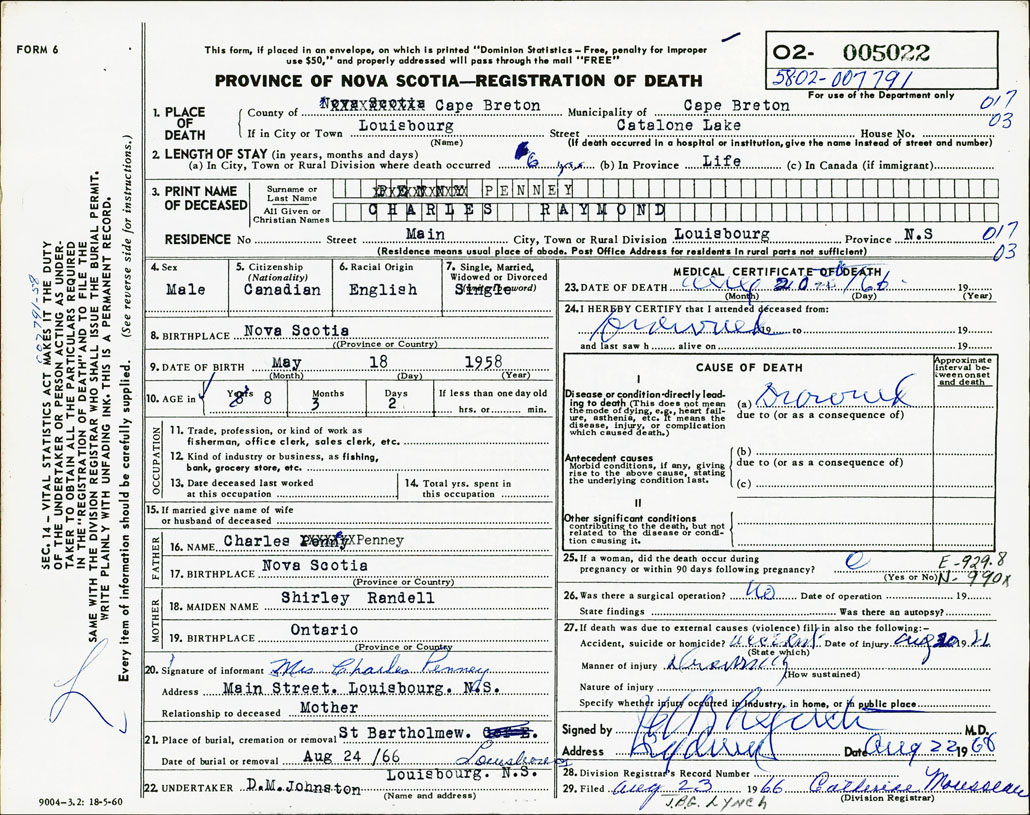 FORM 6
This form, if placed in an envelope, on which is printed "Dominion Statistics – Free, penalty for improper
use $50," and properly addressed will pass through the mail "FREE"
O2- 005022
5802-007791
For use of the Department only
PROVINCE OF NOVA SCOTIA—REGISTRATION OF DEATH
1. PLACE OF DEATH
County of Nova Scotia Cape Breton Municipality of Cape Breton
017
03
If in City or Town Louisbourg Street Catalone Lake House No.
(Name) (If death occurred in a hospital or institution, give the name instead of street and number)
2. LENGTH OF STAY (in years, months and days)
(a) In City, Town or Rural Division where death occurred 6 yrs (b) In Province Life (c) In Canada (if immigrant)
3. PRINT NAME OF DECEASED
Surname or Last Name PENNEY
All Given or Christian Names CHARLES RAYMOND
RESIDENCE No Street Main City, Town or Rural Division Louisbourg Province N.S
017
03
(Residence means usual place of abode. Post Office Address for residents in rural parts not sufficient)
4. Sex
Male
5. Citizenship
(Nationality)
Canadian
6. Racial Origin
English
7. Single, Married,
Widowed or Divorced
Single
8. BIRTHPLACE Nova Scotia
(Province or Country)
9. DATE OF BIRTH May 18 1958
(Month) (Day) (Year)
10. AGE in Years 8 Months 3 Days 2 If less than one day old
hrs. or min.
OCCUPATION
11. Trade, profession, or kind of work as
fisherman, office clerk, sales clerk, etc.
12. Kind of industry or business, as fishing,
bank, grocery store, etc.
13. Date deceased last worked
at this occupation
14. Total yrs. spent in
this occupation
15. If married give name of wife
or husband of deceased
FATHER
16. NAME Charles Penney
17. BIRTHPLACE Nova Scotia
(Province or Country)
MOTHER
18. MAIDEN NAME Shirley Randell
19. BIRTHPLACE Ontario
(Province or Country)
20. Signature of informant Mrs. Charles Penney
Address Main Street. Louisbourg. N.S.
Relationship to deceased Mother
21. Place of burial, cremation or removal St Bartholmew. C of E.
Date of burial or removal Aug 24 /66 Louisbourg
Louisbourg. N.S.
22 UNDERTAKER D.M.Johnston
(Name and address)
9004-3.2: 18-5-60
MEDICAL CERTIFICATE OF DEATH
23. DATE OF DEATH Aug 20 /66 19
(Month) (Day) (Year)
24. I HEREBY CERTIFY that I attended deceased from:
Drowned 19 to 19
and last saw h alive on 19
CAUSE OF DEATH
Approximate interval between onset and death
I
Disease or condition directly leading to death (This does not mean
the mode of dying, e.g., heart failure, asthenia, etc. It means the
disease, injury, or complication
which caused death.)
(a) Drowned
due to (or as a consequence of)
Antecedent causes
Morbid conditions, if any, giving
rise to the above cause, stating
the underlying condition last.
(b)
due to (or as a consequence of)
(c)
II
Other significant conditions
contributing to the death, but not
related to the disease or condition causing it.
25. If a woman, did the death occur during
pregnancy or within 90 days following pregnancy?
(Yes or No)
E-929.8
N-990X
26. Was there a surgical operation? No Date of operation 19
State findings Was there an autopsy?
27. If death was due to external causes (violence) fill in also the following:-
Accident, suicide or homicide? accident Date of injury Aug 20 1966
(State which)
Manner of injury Drowning
(How sustained)
Nature of injury
Specify whether injury occurred in industry, in home, or in public place
Signed by M.D.
Address Sydney Date Aug 22 1966
28. Division Registrar's Record Number
29. Filed Aug 23 1966 Catherine Mousseau
(Division Registrar)
J.P.G. LYNCH
SEC. 14 – VITAL STATISTICS ACT MAKES IT THE DUTY
OF THE UNDERTAKER OR PERSON ACTING AS UNDER-
TAKER TO OBTAIN ALL THE PARTICULARS REQUIRED
IN THE "REGISTRATION OF DEATH" AND TO FILE THE
SAME WITH THE DIVISION REGISTRAR WHO SHALL ISSUE THE BURIAL PERMIT.
WRITE PLAINLY WITH UNFADING INK. THIS IS A PERMANENT RECORD.
Every item of information should be carefully supplied. (See reverse side for instructions.)